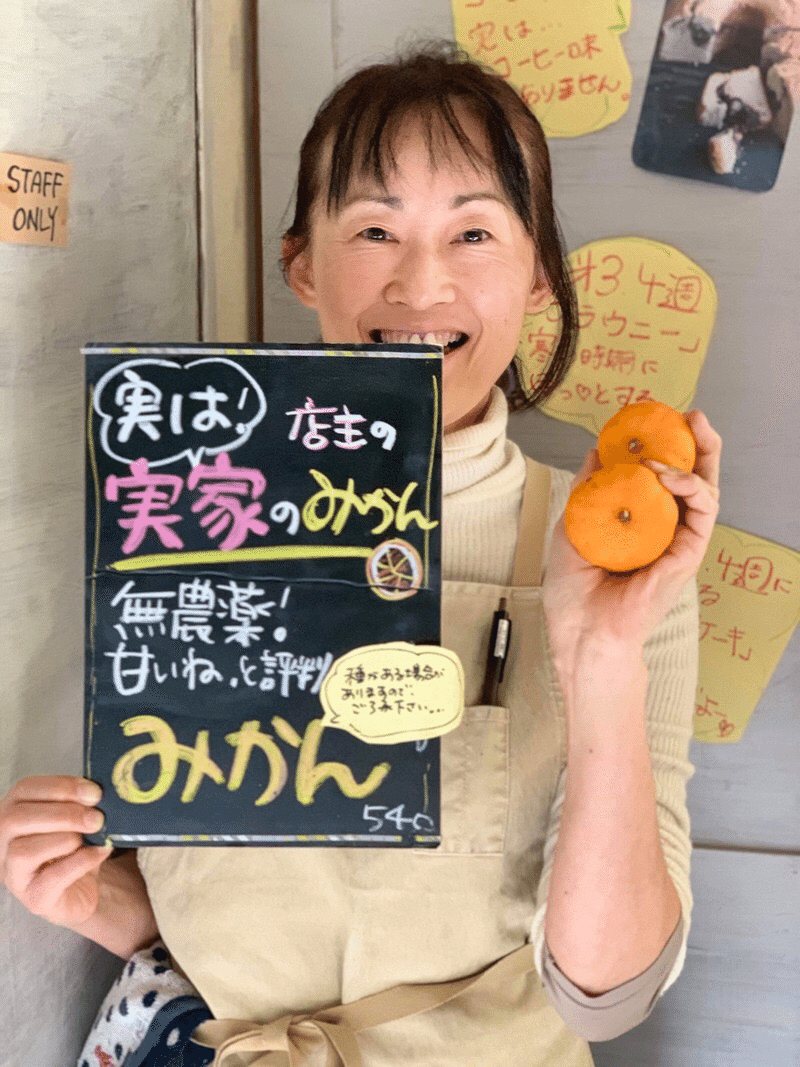 実は…
コーヒー味
ありません。
STAFF
ONLY
#3.4週
ラウニー」
時期に
っ♡とする
実は!
店主の
実家のみかん
無農薬!
甘いね。と評判
種がある場合が
ありますので、
ごろ み下さい…
みかん
540
.4週に
る
ケーキ」
よー♡